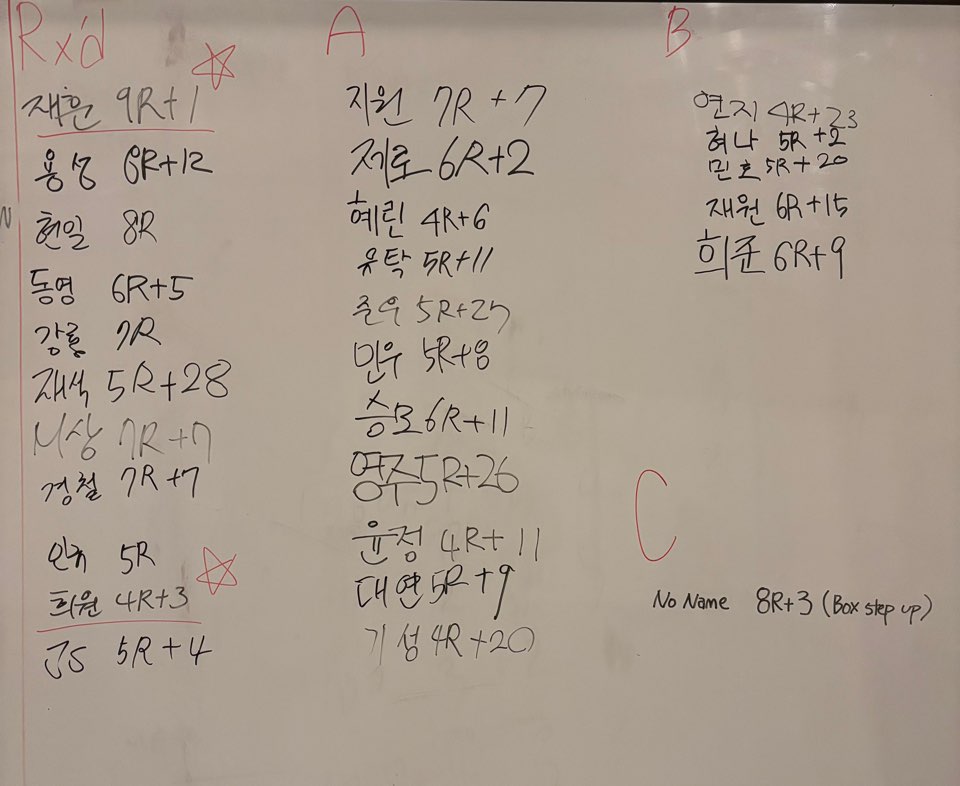 Rx'd
재훈 9R+1
용성 8R+12
현일 8R
동영 6R+5
강룡 7R
재석 5R+28
M상 7R+7
경철 7R+7
인규 5R
희원 4R+3
JS 5R+4
A
지원 7R+7
제로 6R+2
혜린 4R+6
유탁 5R+11
준우 5R+27
민우 5R+8
승모 6R+11
영주 5R+26
윤정 4R+11
대연 5R+9
기성 4R+20
B
연지 4R+23
혀나 5R+2
민호 5R+20
재원 6R+15
희준 6R+9
C
No Name 8R+3 (Box step up)